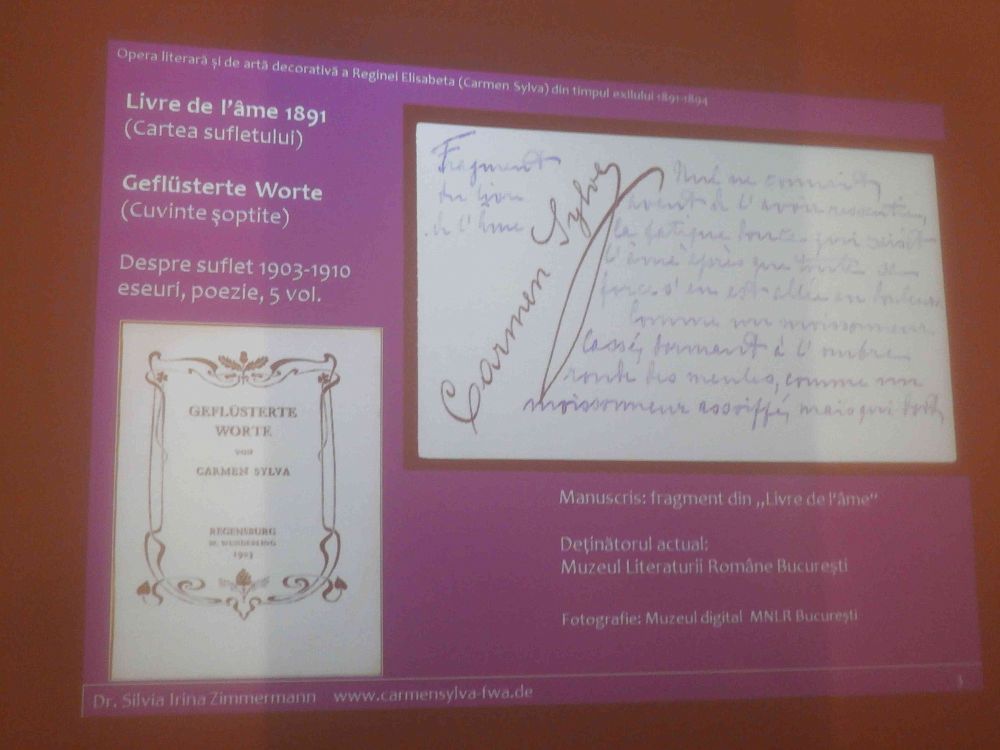 Opera literară și de artă decorativă a Reginei Elisabeta (Carmen Sylva) din timpul exilului 1891-1894
Livre de l'âme 1891
(Cartea sufletului)
Geflüsterte Worte
(Cuvinte șoptite)
Despre suflet 1903-1910
eseuri, poezie, 5 vol.
GEFLÜSTERTE
WORTE
VON
CARMEN SYLVA
REGENSBURG
W. WUNDERLING
1903
Fragment
du livre
de l'âme
Carmen Sylva
Nul ne connaît,
avant de l'avoir ressentie,
la fatigue douce qui saisit
l'âme après que toute sa
force s'en est allée en douleur
comme un moissonneur
lassé, dormant à l'ombre
ronde des meules, comme un
moissonneur assoiffé, mais qui
Manuscris: fragment din „Livre de l'âme"
Deținătorul actual:
Muzeul Literaturii Române București
Fotografie: Muzeul digital MNLR București
Dr. Silvia Irina Zimmermann www.carmensylva-fwa.de
3